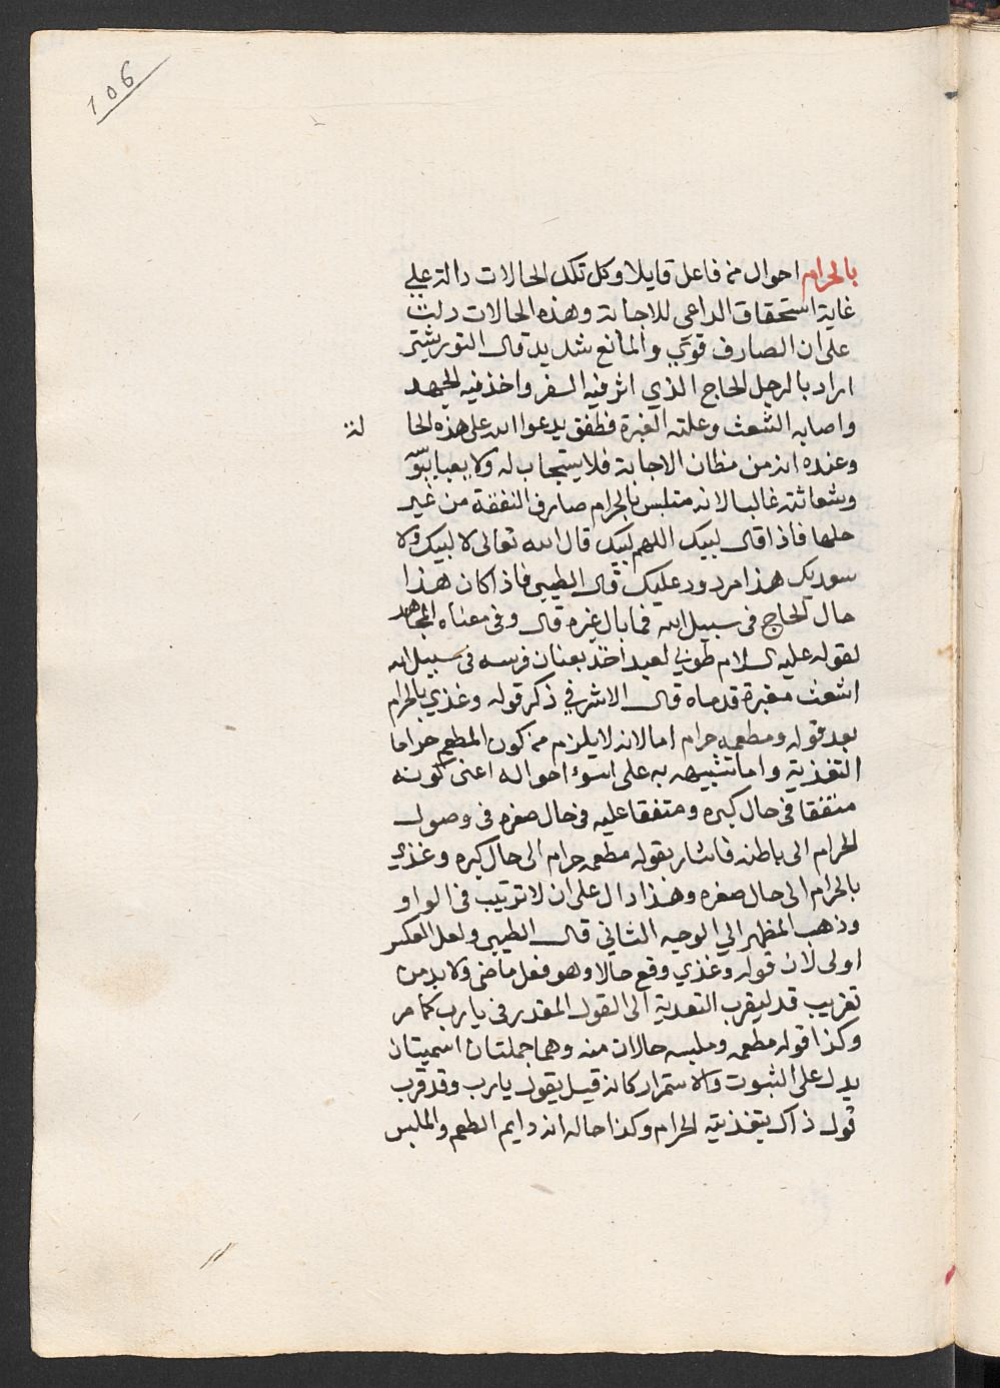 106
بالحرام احوال من فاعل قايلا وكل تلك الحالات دالة علي
غاية استحقاق الداعي للاجابة وهذه الحالات دلت
على ان الصارف قوي والمانع شديد قال التوربشتي
اراد بالرجل الحاج الذي اثر فيه السفر واخذ منه الجهد
واصابه الشعث وعلته الغبرة فطفق يدعوا الله على هذه الحا لة
وعنده انه من مظان الاجابة فلا يستجاب له ولا يعبا ببؤسه
وشعاثته غالبا لانه متلبس بالحرام صارف النفقة من غير
حلها فاذا قال لبيك اللهم لبيك قال الله تعالى لا لبيك ولا
سعديك هذا مردود عليك قال الطيبي فاذا كان هذا
حال الحاج في سبيل الله فما بال غيره قال وفي معناه المجاهد
لقوله عليه السلام طوبي لعبد اخذ بعنان فرسه في سبيل الله
اشعث مغبرة قدماه قال الاشرفي ذكر قوله وغذي بالحرام
بعد قوله ومطعمه حرام اما لانه لا يلزم من كون المطعم حراما
التغذية واما تنبيه به على اسوء احواله اعنى كونه
منفقا في حال كبره ومتفقا عليه في حال صغره في وصول
الحرام الى باطنه فاشار بقوله مطعمه حرام الى حال كبره وغذي
بالحرام الى حال صغره وهذا دال على ان لا ترتيب في الواو
وذهب المظهر الي الوجه الثاني قال الطيبي ولعل العكس
اولى لان قوله وغذي وقع حالا وهو فعل ماضي ولا بد من
تقريب قد ليقرب التعدية الى القول المقدر في يا رب كما مر
وكذا قوله مطعمه وملبسه حالات منه وهما جملتان اسميتان
يدل على الثبوت والاستمرار كانه قيل يقول يا رب وقد قرب
قول ذاك بتغذيته الحرام وكذا حاله انه دايم الطعم والملبس